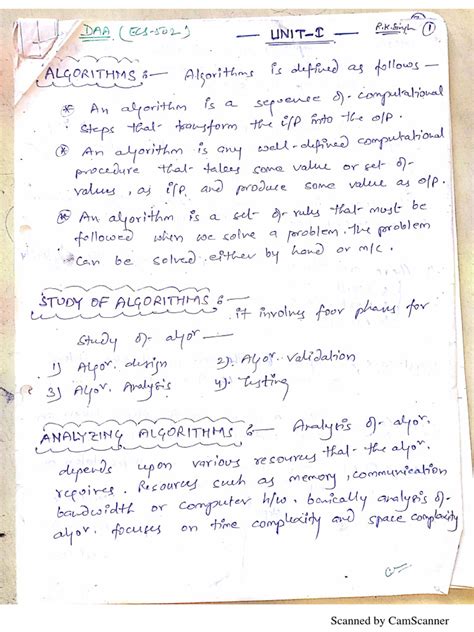 DAA (ECS-502) — UNIT-I — P.K. Singh 1
ALGORITHMS :— Algorithms is defined as follows —
* An algorithm is a sequence of computational
steps that transform the i/p into the o/p.
* An algorithm is any well-defined computational
procedure that takes some value or set of
values, as i/p and produce some value as o/p.
* An algorithm is a set of rules that must be
followed when we solve a problem. The problem
can be solved either by hand or m/c.
STUDY OF ALGORITHMS :— it involves four phases for
study of algor —
1) Algor. design 2). Algor. validation
3) Algor. Analysis 4). Testing
ANALYZING ALGORITHMS :— Analysis of algor.
depends upon various resources that the algor.
requires. Resources such as memory, communication
bandwidth or computer h/w. basically analysis of
algor. focuses on time complexity and space complexity
Scanned by CamScanner